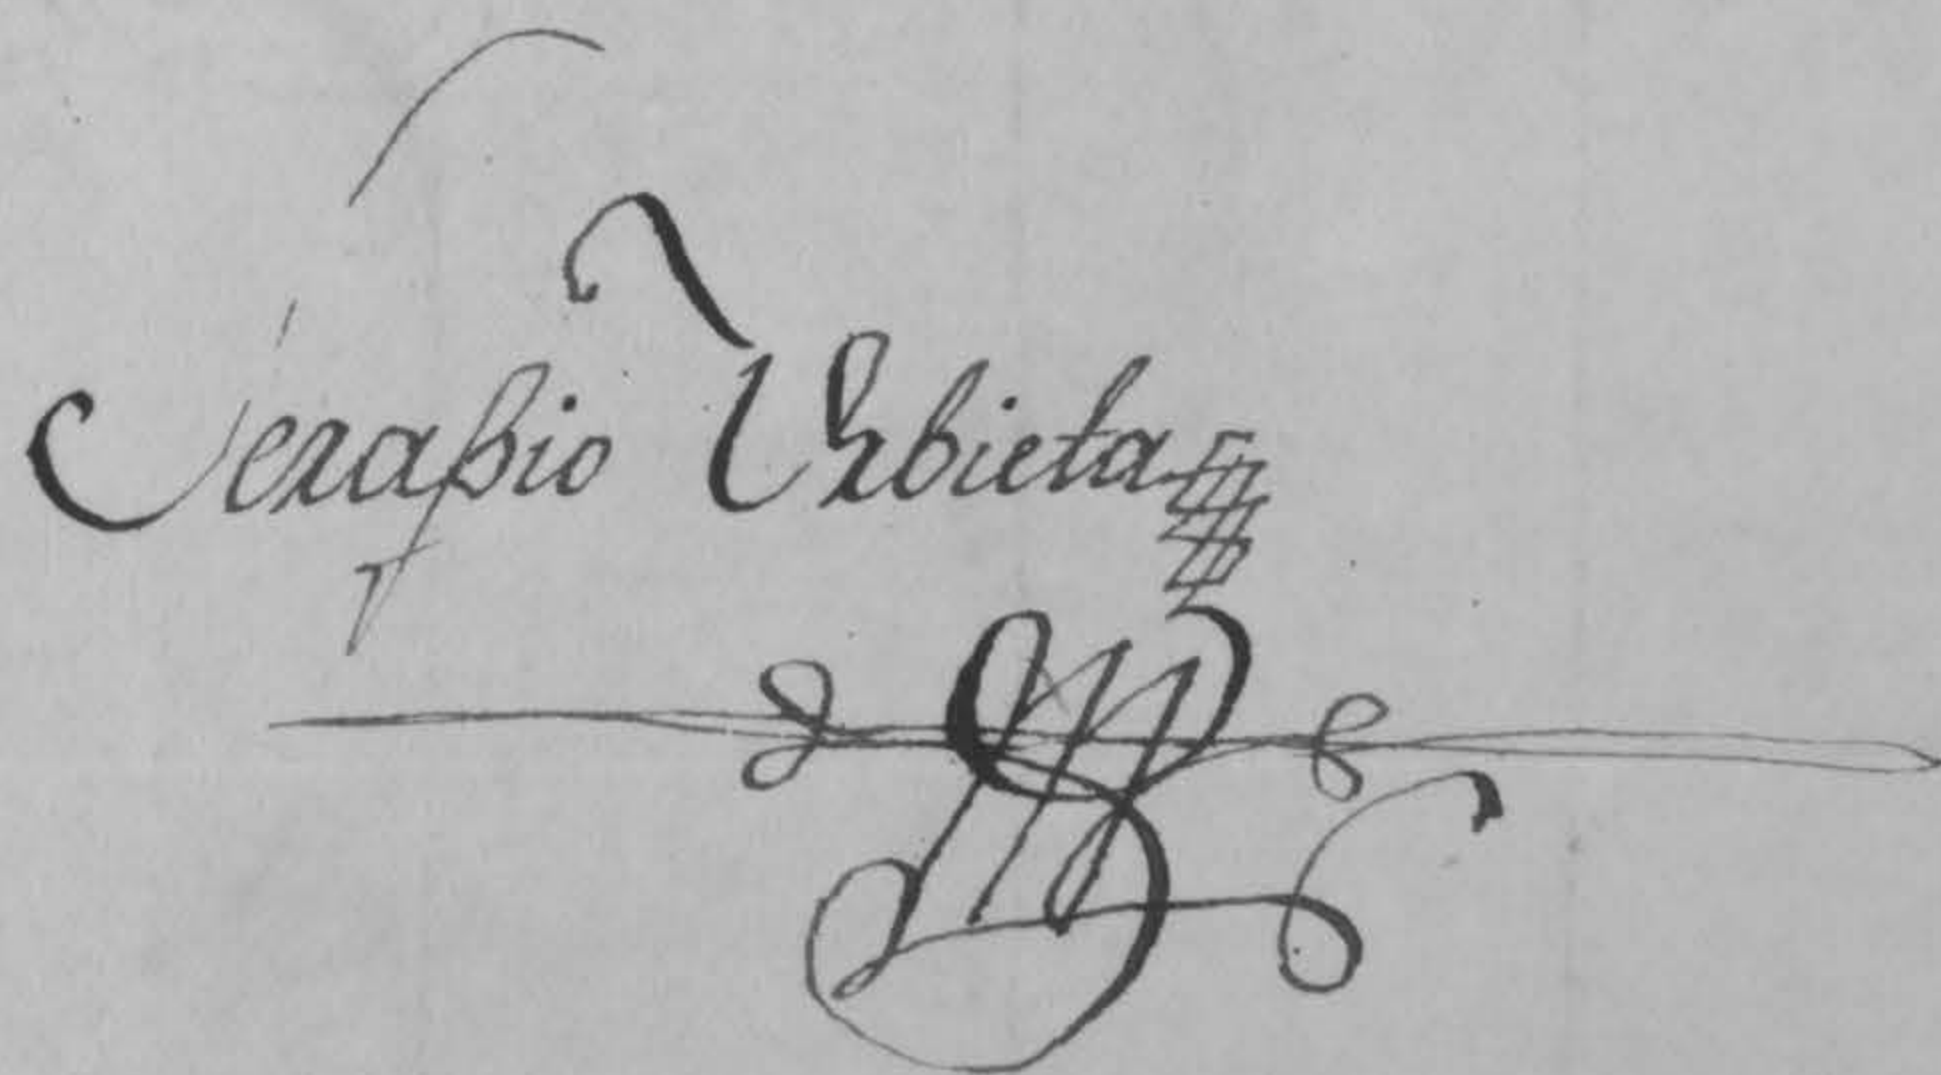 Serapio Urbieta